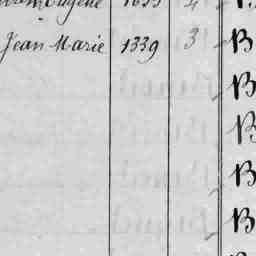 Eugène 1655 4 B
Jean Marie 1339 3 B
B
B
B
B